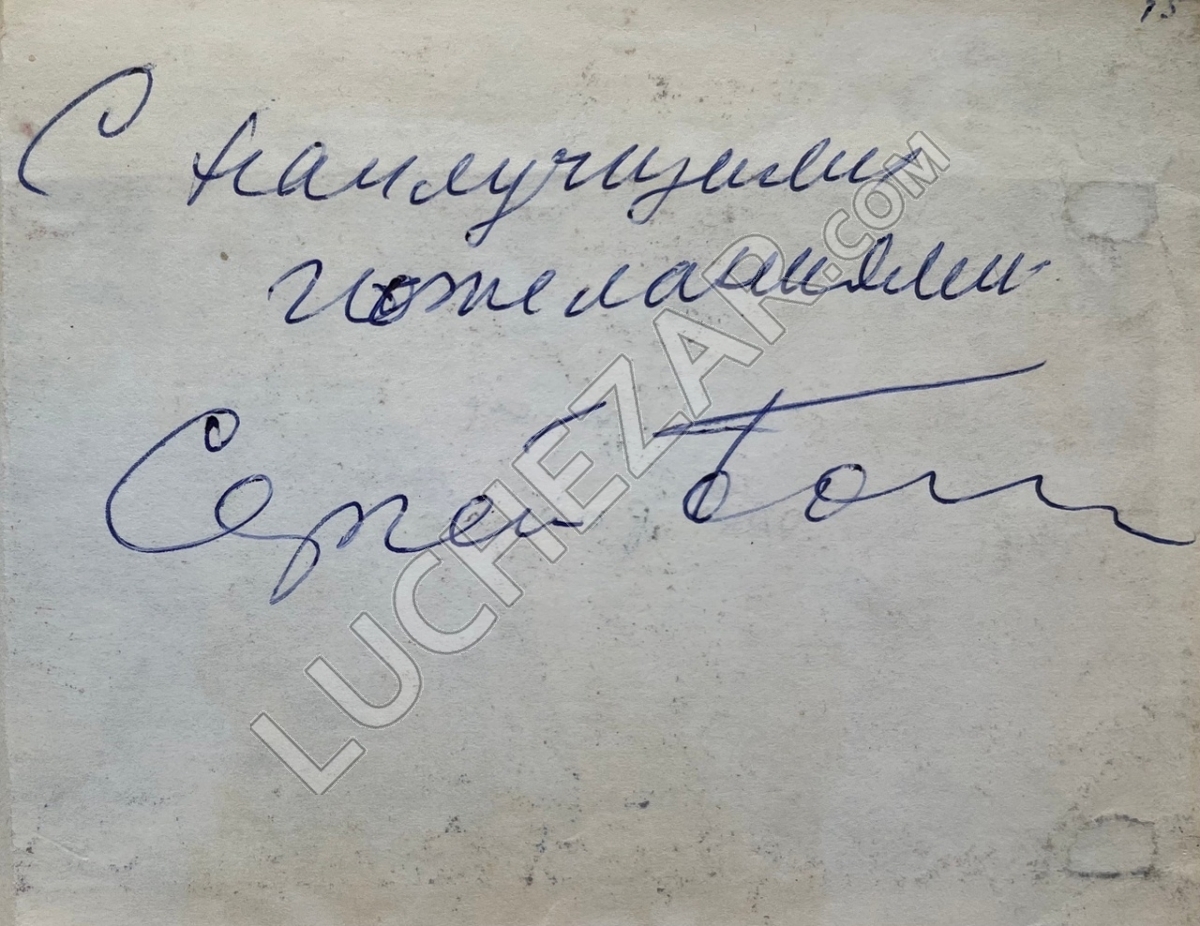 С наилучшими
пожеланиями
Сергей
LUCHEZAR.COM